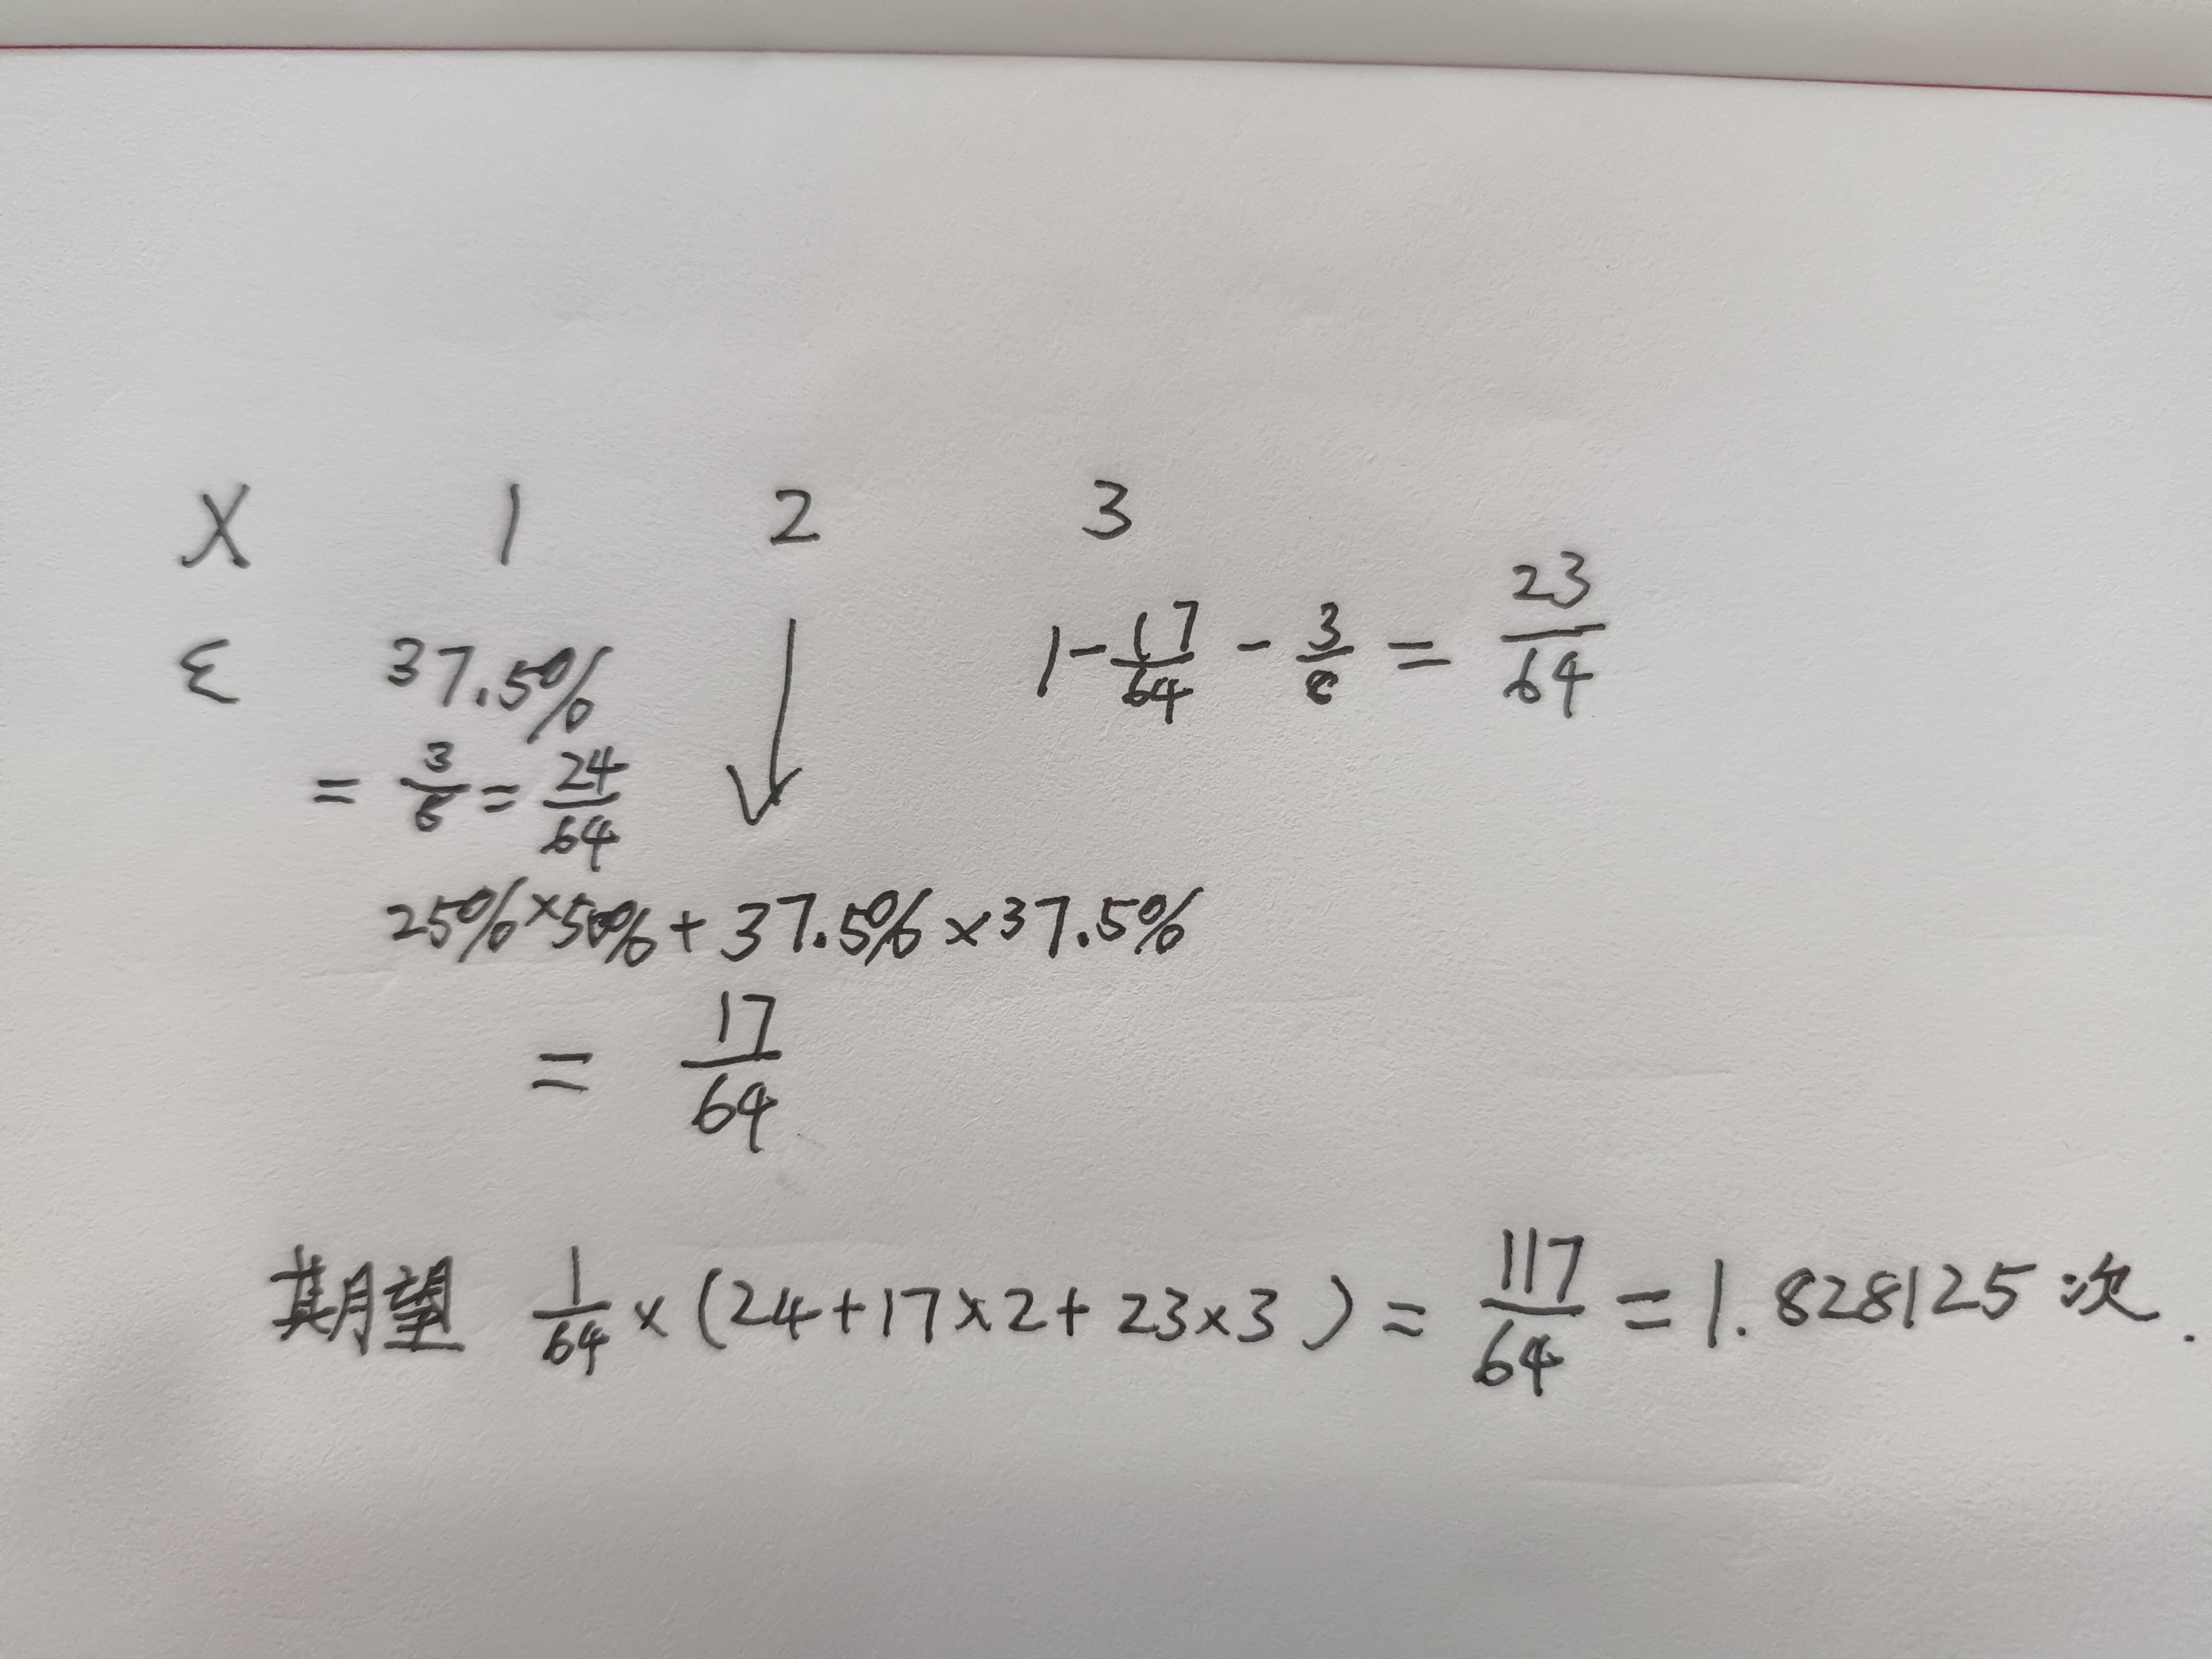 X 1 2 3
ξ 37.5% 1-17/64-3/8=23/64
=3/8=24/64
25%×50%+37.5%×37.5%
=17/64
期望 1/64×(24+17×2+23×3)=117/64=1.828125次.